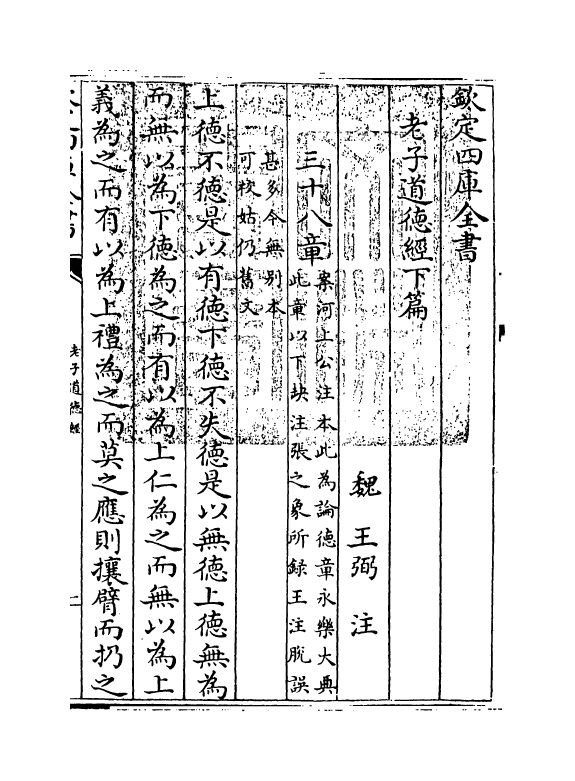 欽定四庫全書
老子道德經下篇
魏 王弼 注
三十八章
案河上公注本此為論德章永樂大典
此章以下缺注張之象所録王注脫誤
甚多今無别本
可校姑仍舊文
上德不德是以有德下德不失德是以無德上德無為
而無以為下德為之而有以為上仁為之而無以為上
義為之而有以為上禮為之而莫之應則攘臂而扔之
老子道德經